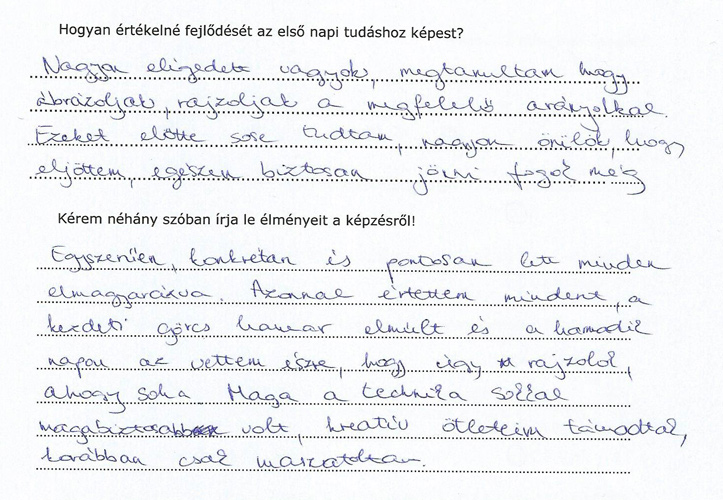 Hogyan értékelné fejlődését az első napi tudáshoz képest?
Nagyon elégedett vagyok, megtanultam hogy
ábrázoljak, rajzoljak a megfelelő arányokkal.
Ezeket előtte sose tudtam, nagyon örülök, hogy
eljöttem, egészen biztosan jönni fogok még
Kérem néhány szóban írja le élményeit a képzésről!
Egyszerűen, konkrétan és pontosan lett minden
elmagyarázva. Azonnal értettem mindent, a
kezdeti görcs hamar elmúlt és a harmadik
napon az vettem észre, hogy úgy rajzolok,
ahogy soha Maga a technika sokkal
magabiztosabb volt, kreatív ötleteim támadtak,
korábban csak maszatoltam.